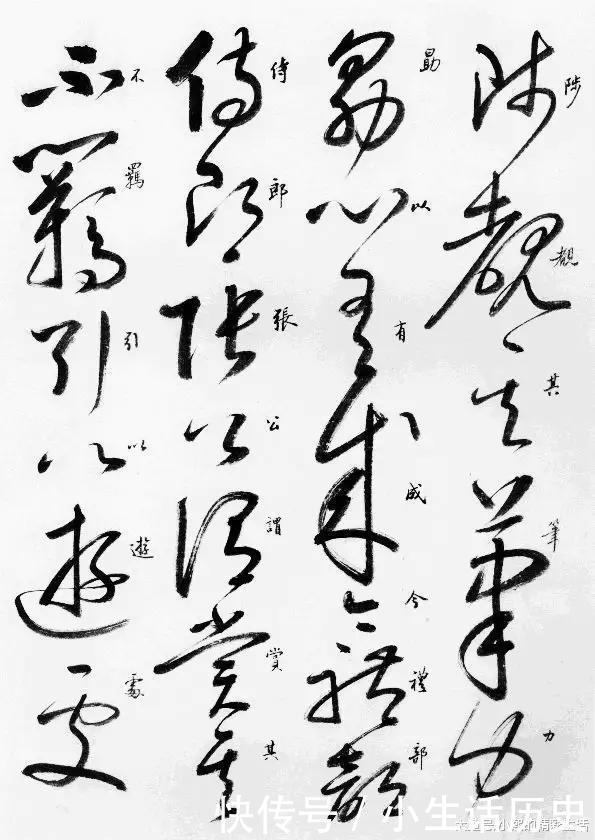 陟覩其筆力
勗以有成今禮部
侍郎張公謂賞其
不羈引以遊處
快传号/小生活历史